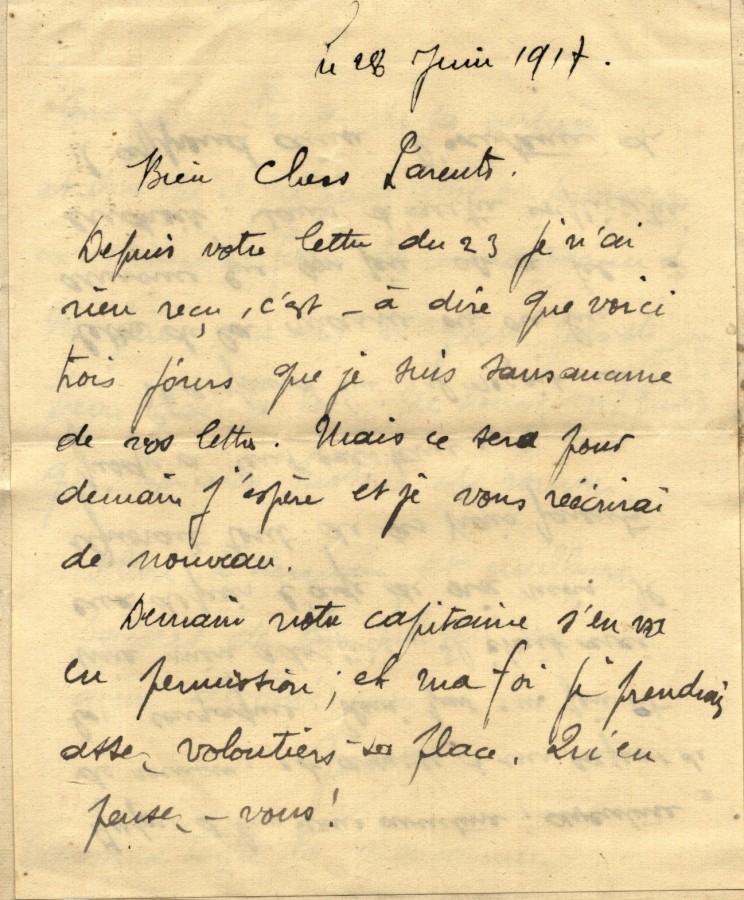 le 28 Juin 1917.
Bien Chers Parents.
Depuis votre lettre du 23 je n'ai
rien reçu, c'est - à dire que voici
trois jours que je suis sans aucune
de vos lettres. Mais ce sera pour
demain j'espère et je vous réécrirai
de nouveau.
Demain notre capitaine s'en va
en permission; et ma foi je prendrais
assez volontiers sa place. Qu'en
pensez - vous!